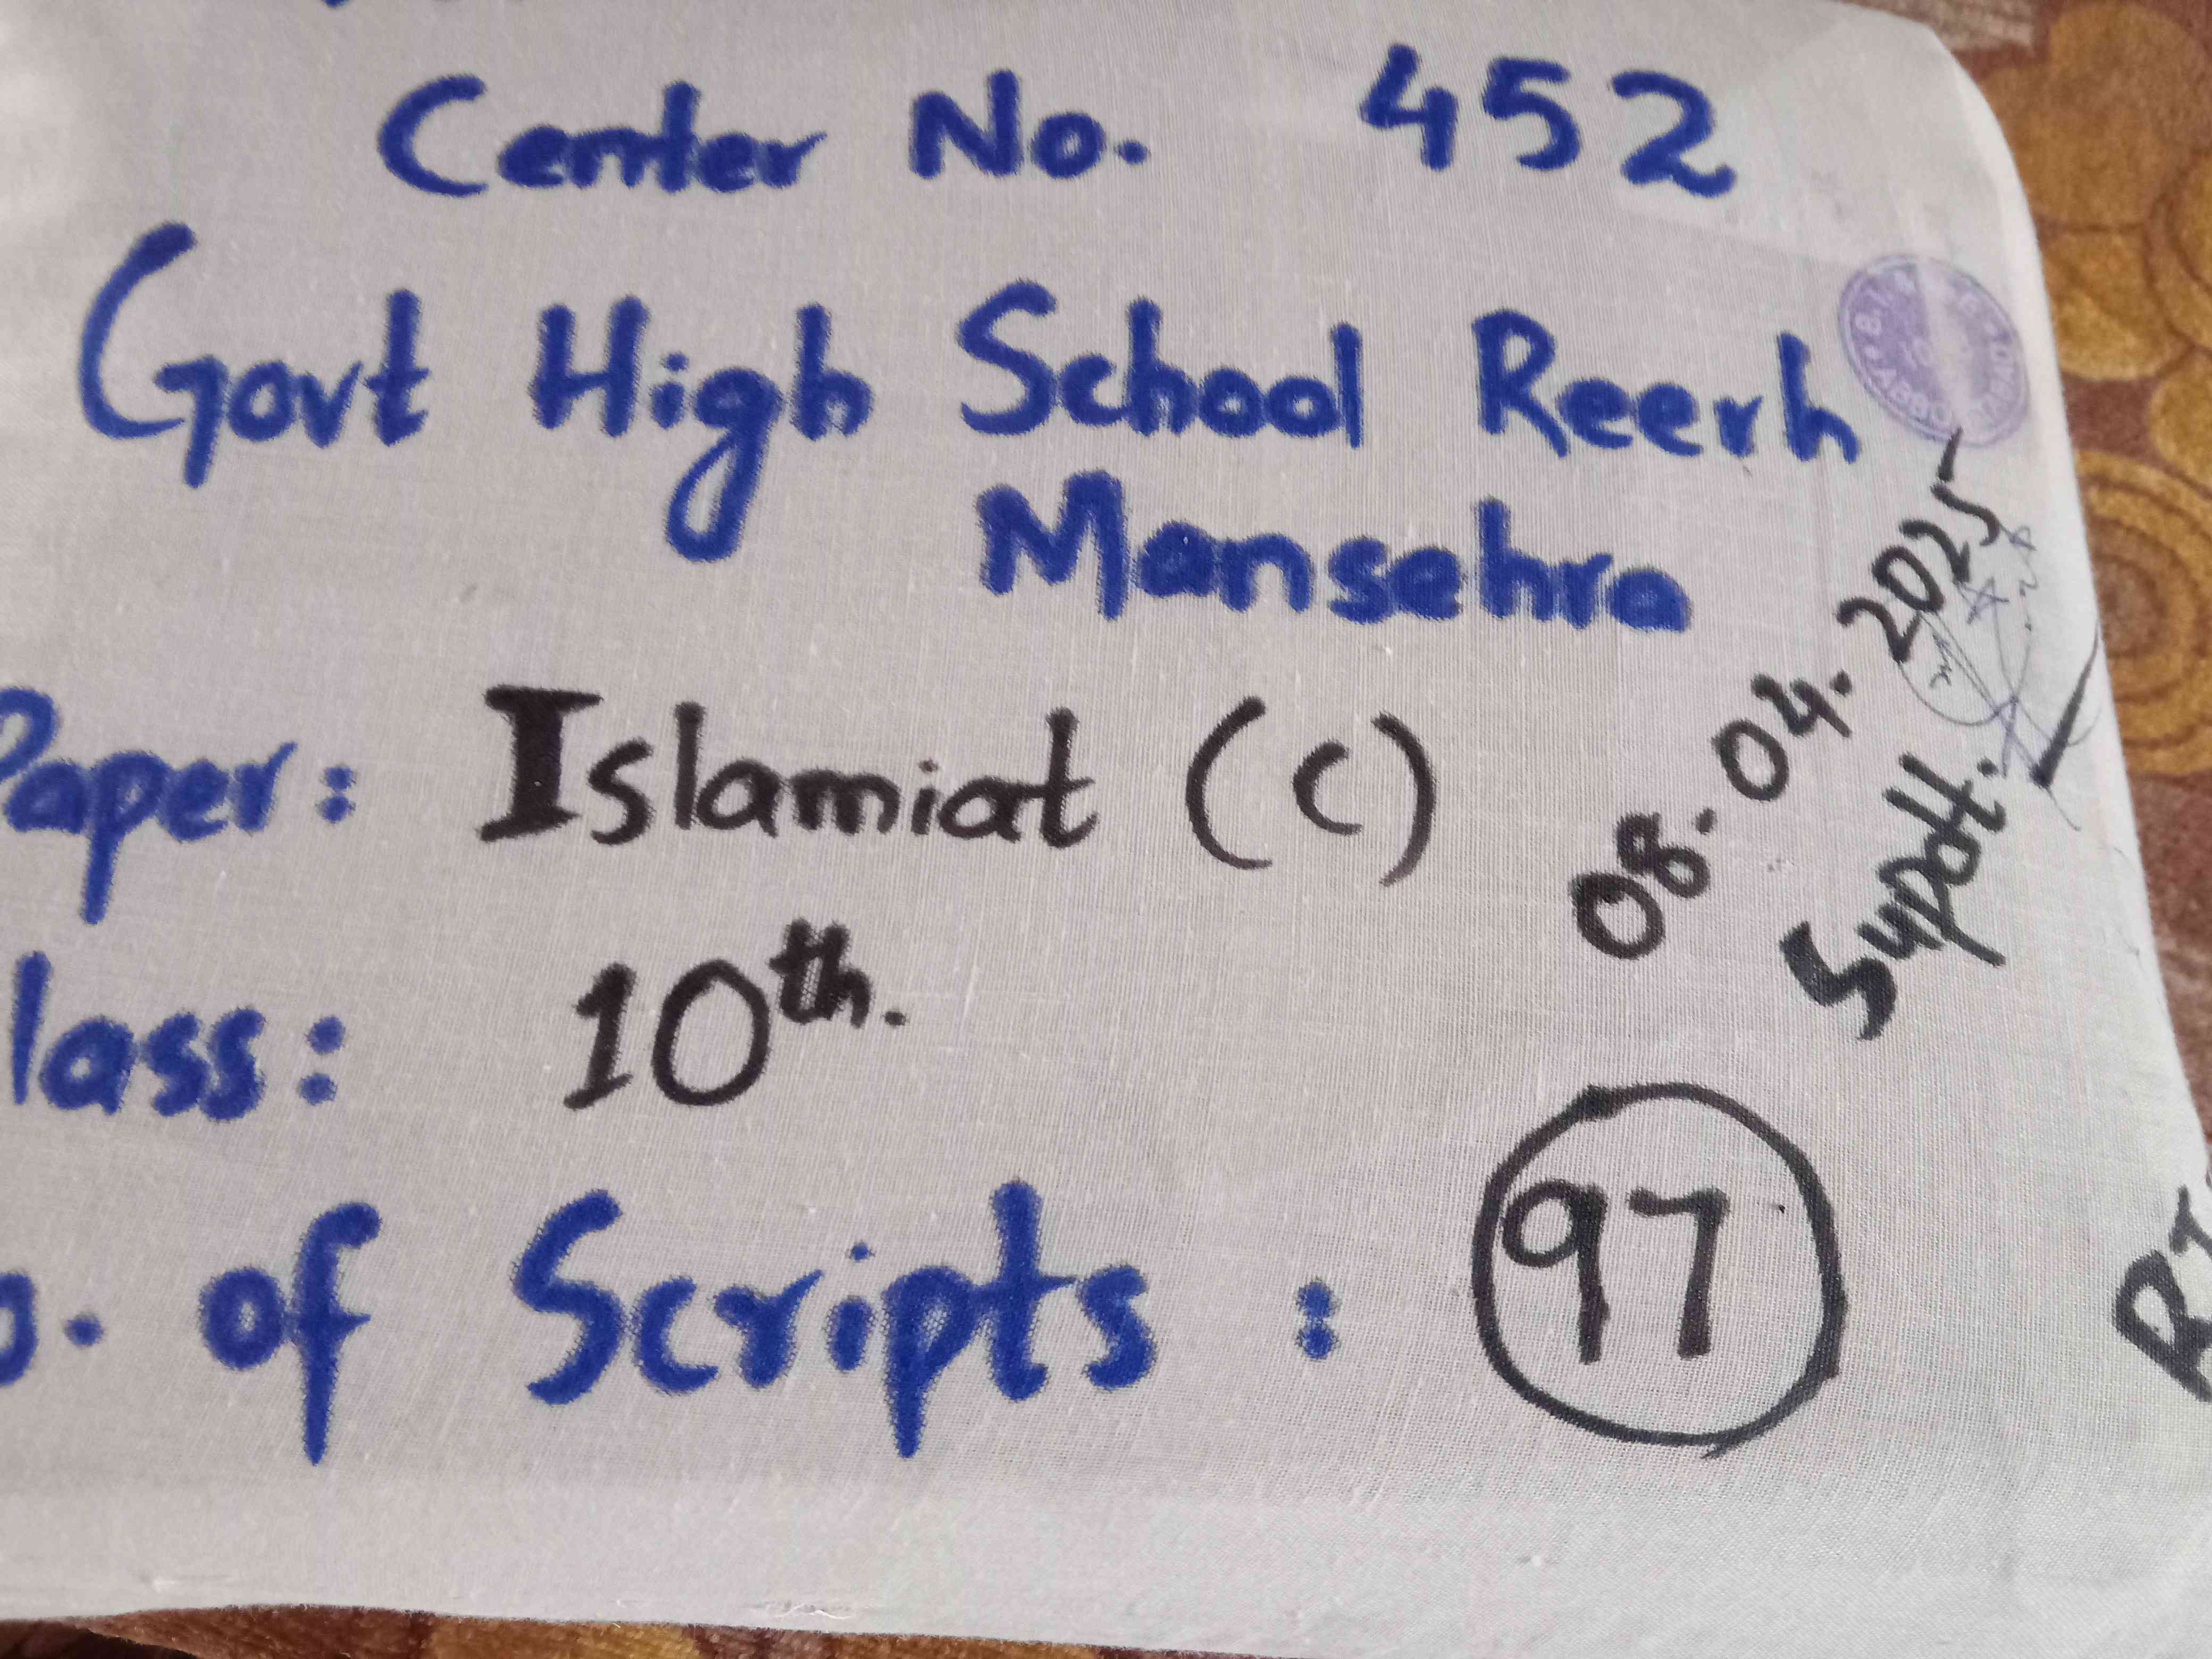 Center No. 452
Govt High School Reerh
Mansehra
Paper: Islamiat (C)
lass: 10th.
o. of Scripts : 97
08.04.2025
Supdtt.